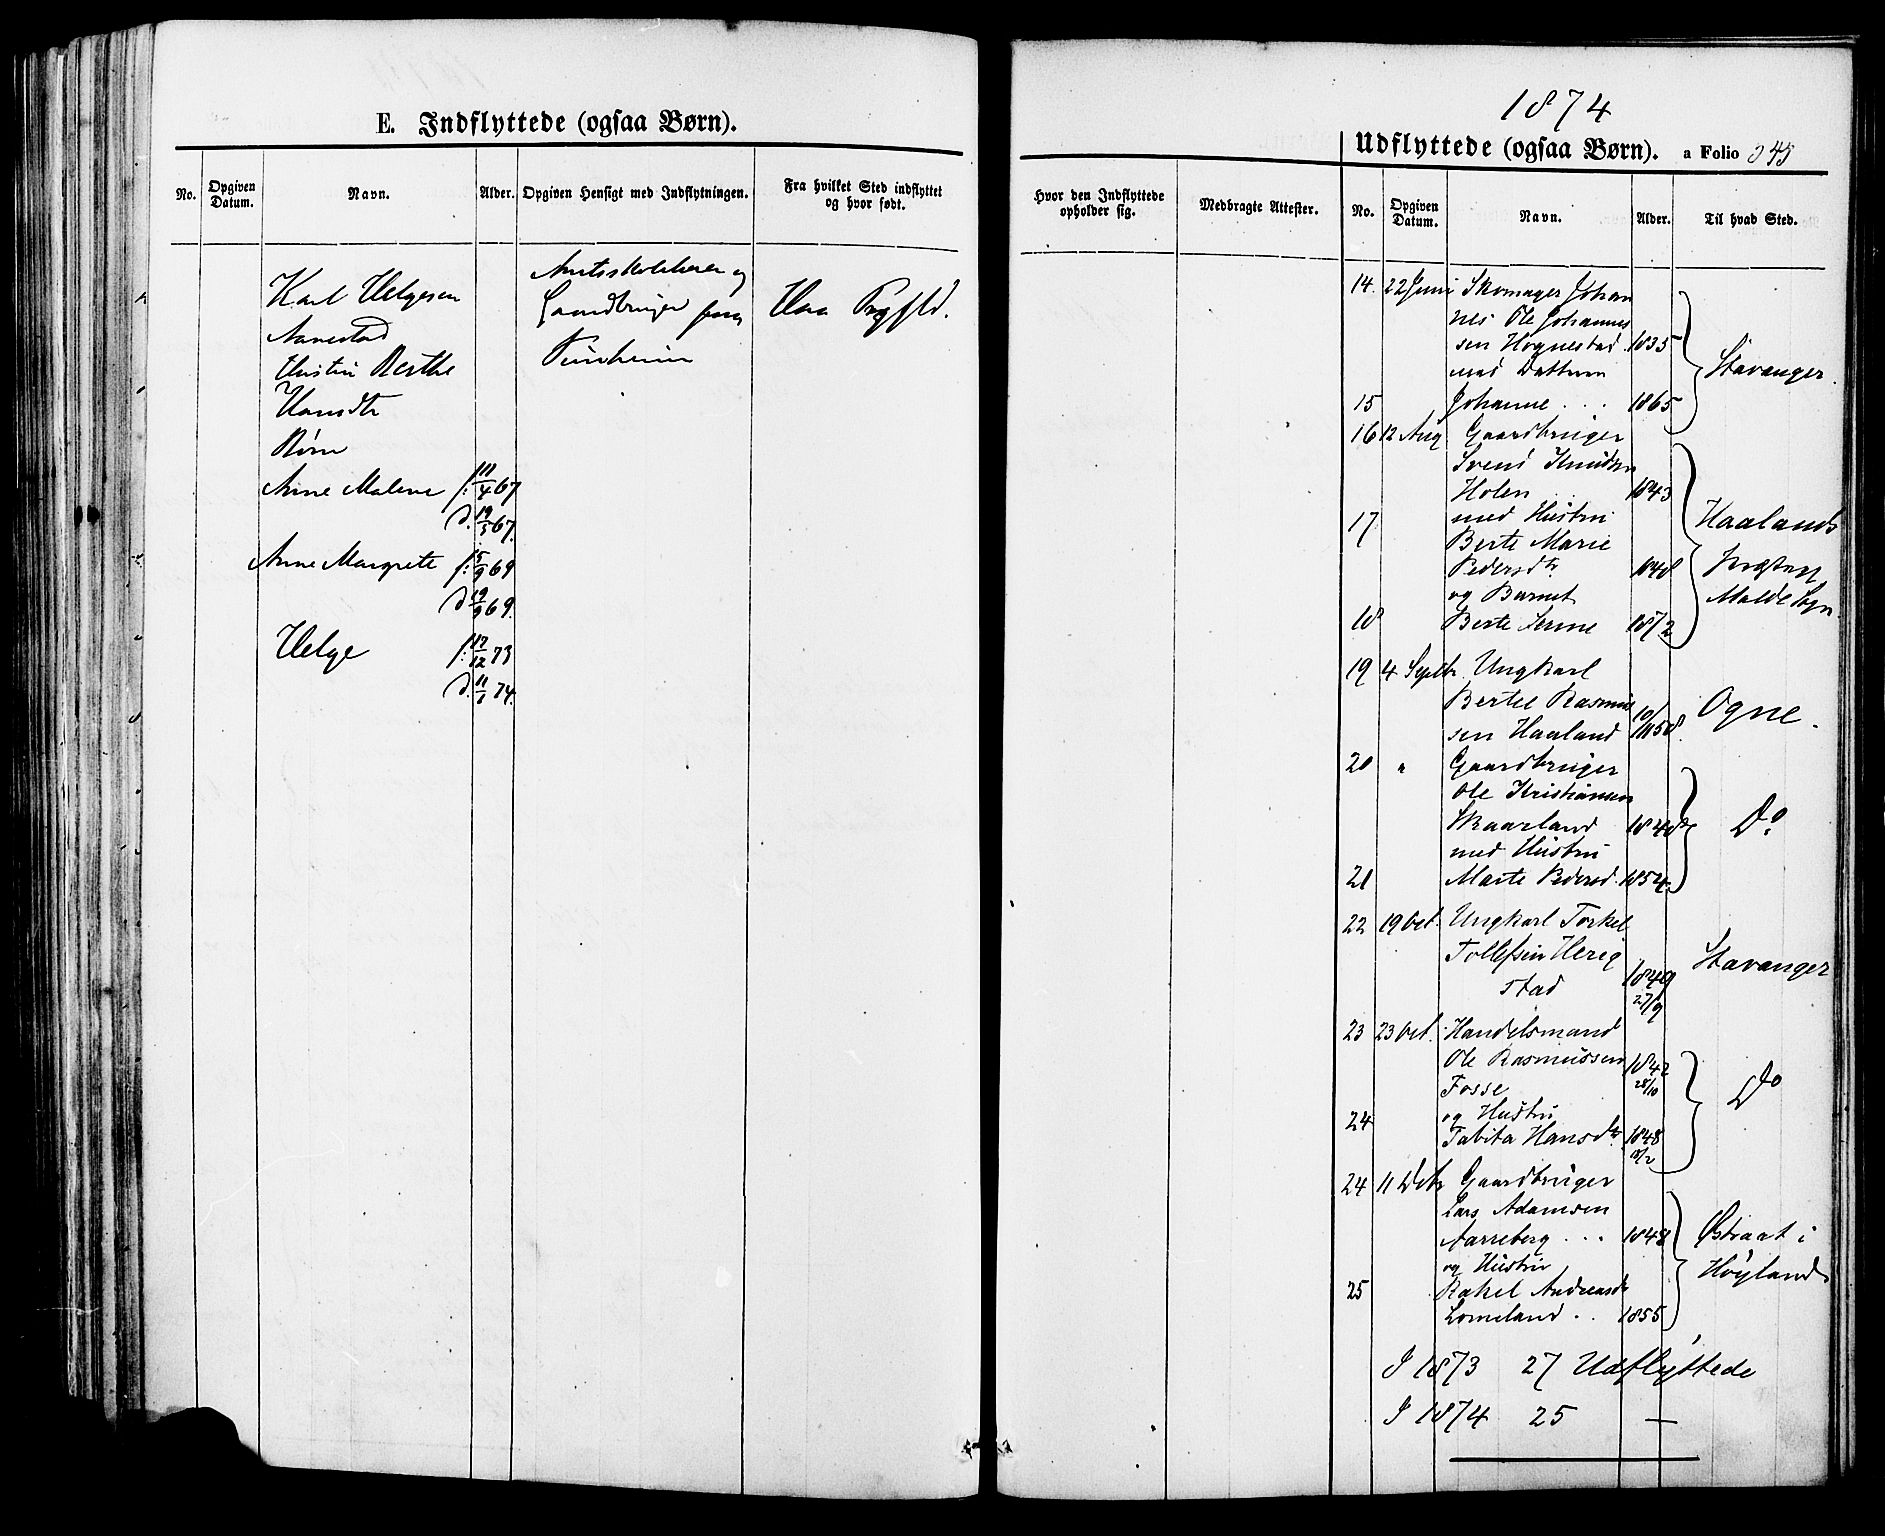 E. Indflyttede (ogsaa Børn).
No.
Opgiven Datum.
Navn.
Alder.
Opgiven Hensigt med Indflytningen.
Fra hvilket Sted indflyttet og hvor født.
Karl Helgesen
Aanestad
Hustru Berthe
Børn
Anne Malene f. 11/4 67
d. 19/5 67.
Anne Margrete f. 5/9 69
d. 19/9 69.
Helge f. 12/12 73
d. 11/1 74.
og
Gaardbruger
1874
Udflyttede (ogsaa Børn). a Folio 345
Hvor den Indflyttede opholder sig.
Medbragte Attester.
No.
Opgiven Datum.
Navn.
Alder.
Til hvad Sted.
14. 22 Juni Skomager Johan
nes Ole Johannes
sen Hognestad 1835
med Datteren Stavanger.
15 Johanne . . . 1865
16 12 Aug Gaardbruger
Svend Knudsen
Holen 1843
17 med Hustru Haalands
Berte Marie
Pedersdtr. 1848 Præstegj
og Barnet Malde Sogn
18 Berte Serine 1872
19 4 Septbr. Ungkarl
Bertel Rasmus Ogne.
sen Haaland 10/11 58.
20 " Gaardbruger
Ole Kristiansen
Skaarland 1848 Do
med Hustru
21 Marte Pedersd. 1854.
22 19 Oct. Ungkarl Torkel
Tollefsen Herig Stavanger
stad 1849
27/9
23 23 Oct. Handelsmand
Ole Rasmussen 1842
Fosse 28/10 Do
24 og Hustru
Tabita Hansdtr. 1848
18/2
24 11 Dcbr Gaardbruger
Lars Adamsen
Aarreberg . . . 1848 Østraat i
og Hustru Høyland
25 Rakel Andreasdtr
Lomeland . . 1855
I 1873 27 Udflyttede
I 1874 25 —